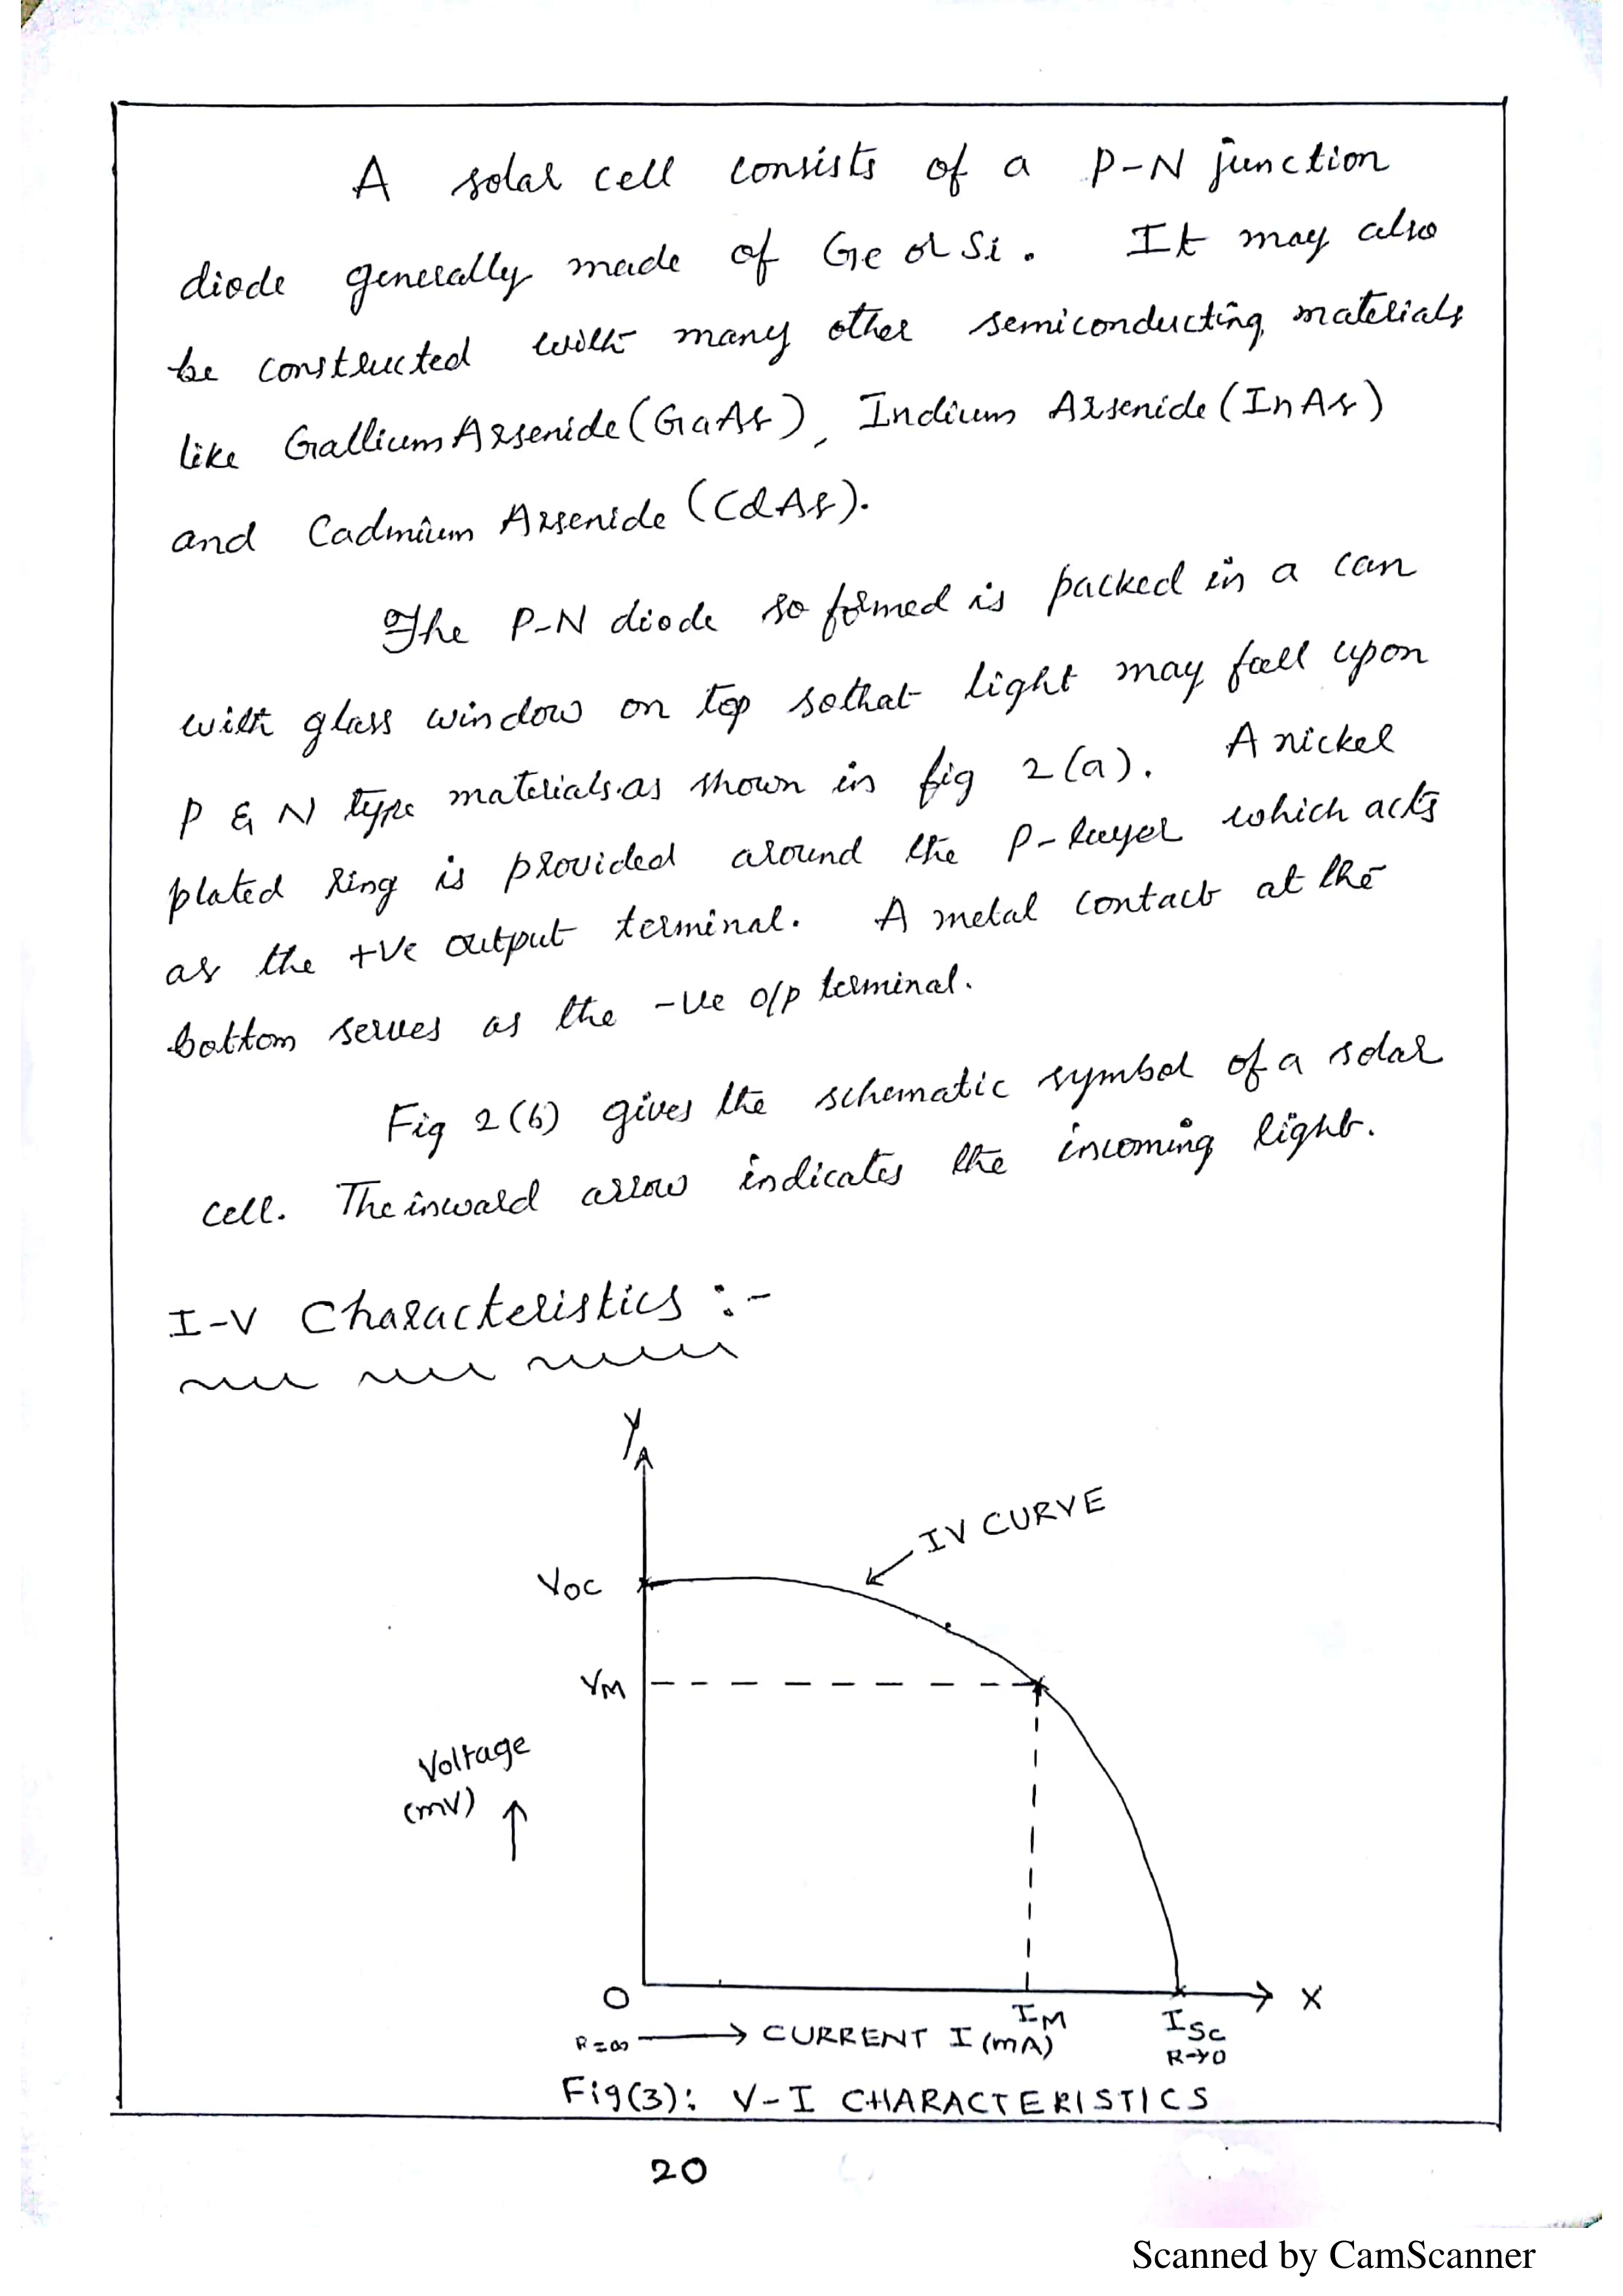 A solar cell consists of a P-N junction
diode generally made of Ge or Si. It may also
be constructed with many other semiconducting materials
like Gallium Arsenide (GaAs), Indium Arsenide (InAs)
and Cadmium Arsenide (CdAs).
The P-N diode so formed is packed in a can
with glass window on top sothat light may fall upon
P & N type materials.as shown in fig 2(a). A nickel
plated ring is provided around the P-layer which acts
as the +ve output terminal. A metal contact at the
bottom serves as the -ve o/p terminal.
Fig 2(b) gives the schematic symbol of a solar
cell. The inward arrow indicates the incoming light.
I-V Characteristics :-
Y
IV CURVE
VOC
VM
Voltage
(mV)
O
X
IM
ISC
R=∞ → CURRENT I (mA)
R→0
Fig(3): V-I CHARACTERISTICS
20
Scanned by CamScanner